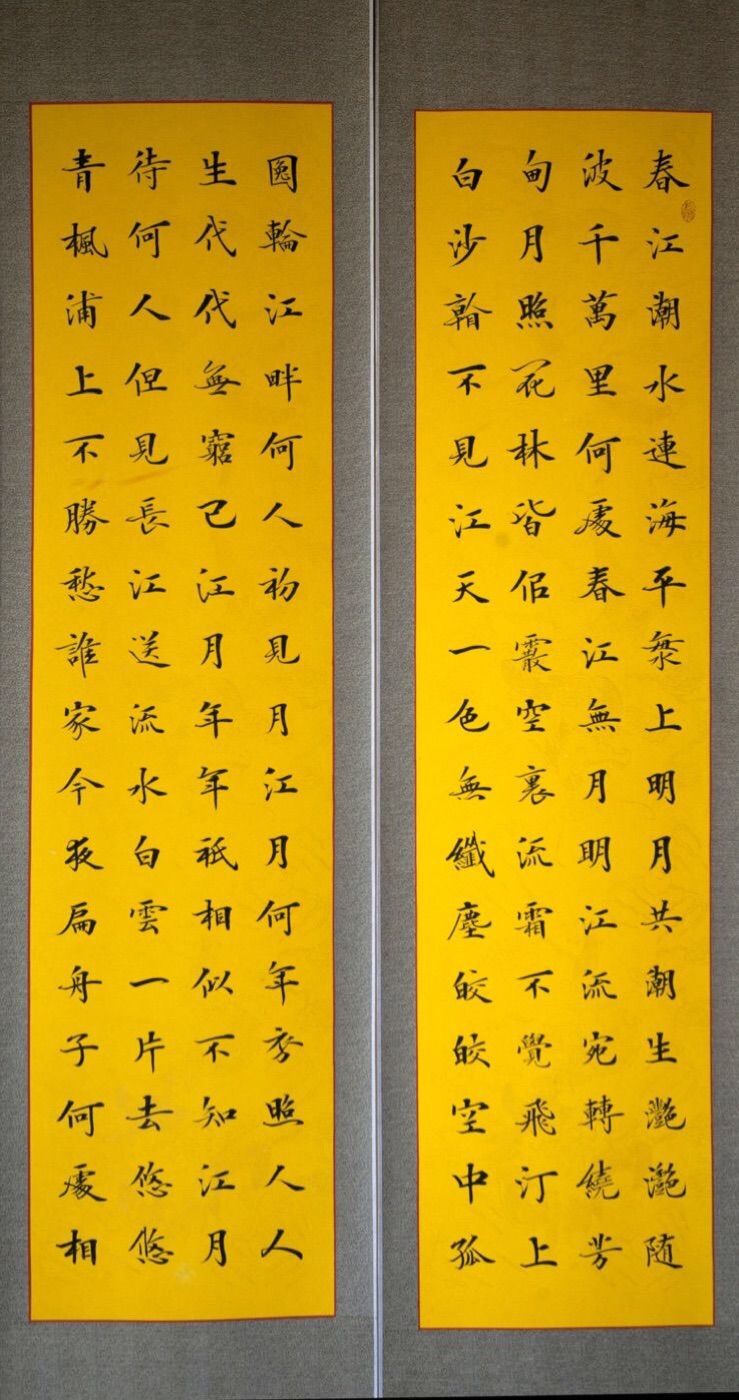 春江潮水連海平海上明月共潮生灩灩随
波千萬里何處春江無月明江流宛轉繞芳
甸月照花林皆佀霰空裏流霜不覺飛汀上
白沙看不見江天一色無纖塵皎皎空中孤
圎輪江畔何人初見月江月何年初照人人
生代代無窮已江月年年祇相似不知江月
待何人但見長江送流水白雲一片去悠悠
青楓浦上不勝愁誰家今夜扁舟子何處相